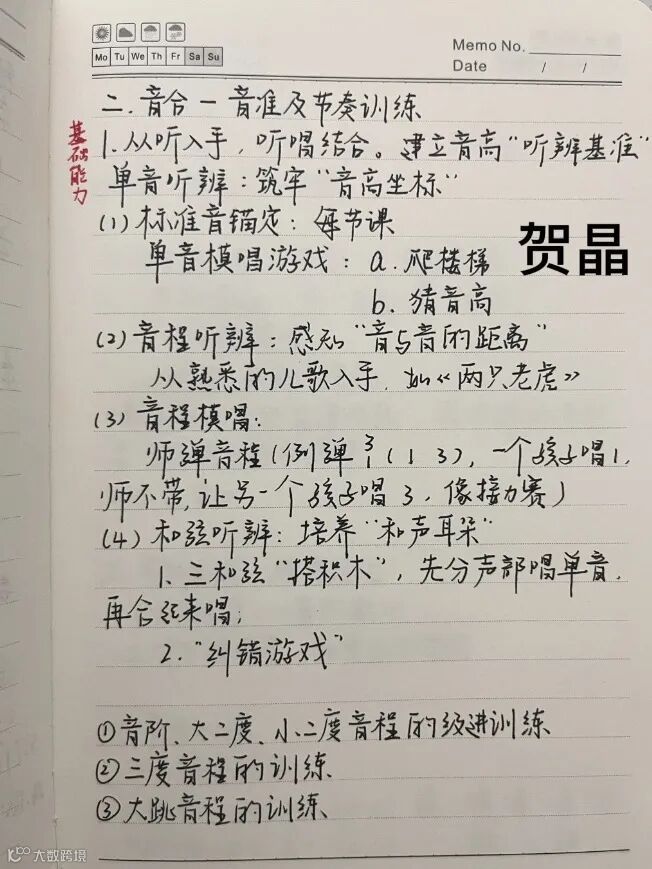 Memo No.
Mo Tu We Th Fr Sa Su
Date / /
二.音合一音准及节奏训练
基础能力
1.从听入手,听唱结合。建立音高"听辨基准"
单音听辨:筑牢"音高坐标"
(1)标准音锚定:每节课
单音模唱游戏:a.爬楼梯
贺晶
b.猜音高
(2)音程听辨:感知"音与音的距离"
从熟悉的儿歌入手,如《两只老虎》
(3)音程模唱:
师弹音程(例弹 3 1(1 3),一个孩子唱1,
师不带,让另一个孩子唱3,像接力赛)
(4)和弦听辨:培养"和声耳朵"
1.三和弦"搭积木",先分声部唱单音,
再合起来唱;
2."纠错游戏"
①音阶、大二度、小二度音程的级进训练
②三度音程的训练
③大跳音程的训练
大数跨境